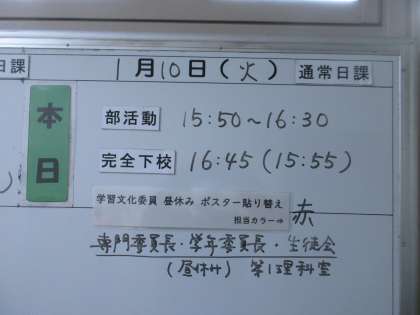 日課
1月10日(火) 通常日課
本日
部活動 15:50~16:30
完全下校 16:45(15:55)
学習文化委員 昼休み ポスター貼り替え
担当カラー⇒ 赤
専門委員長・学年委員長・生徒会
(昼休み) 第1理科室